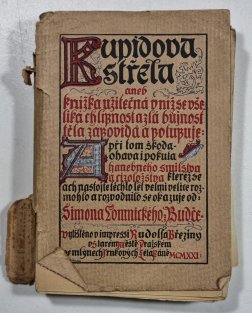 Kupidova
střela
aneb
knižka užitečná v níž se vše
liká chlipnost a zlá bujnost
těla zapovídá a potupuje
při tom škoda
ohava i pokuta
hanebného smilstva
a cizoložstva které z se
ach na syte těchto let velmi velice roz
mohlo a rozvodnilo se okazuje od
Šimona Lomnického z Budče
vytištěno v impressi Rudolfa Březiny
v Starém Městě Pražském
MCMXXI